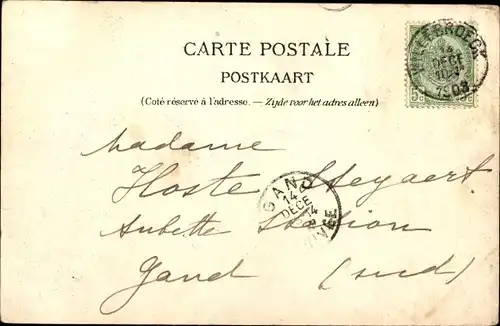 CARTE POSTALE
POSTKAART
(Coté réservé à l'adresse. — Zijde voor het adres alleen)
WILLEBROECK
14
DECE
1903
5c
Madame
Hoste Steyaert
Aubette Station
Gand (sud)
GAND
14
DECE
14